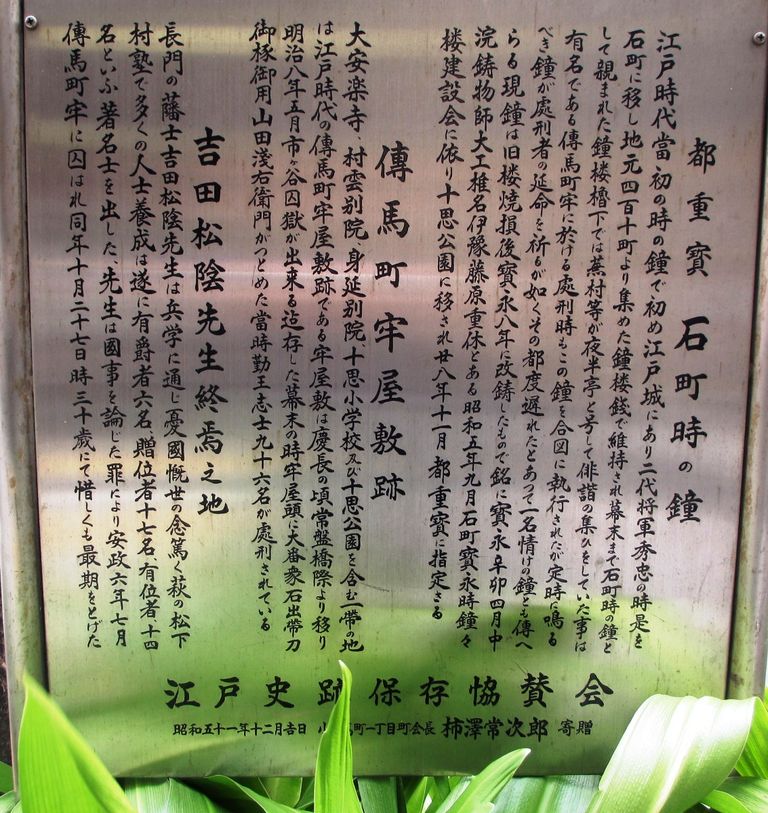 都重寳 石町時の鐘
江戸時代當初の時の鐘で初め江戸城にあり二代将軍秀忠の時是を
石町に移し地元四百十町より集めた鐘楼銭で維持され幕末まで石町時の鐘と
して親まれた鐘楼櫓下では蕪村等が夜半亭と号して俳諧の集ひをしていた事は
有名である傳馬町牢に於ける処刑時もこの鐘を合図に執行されたが定時に鳴る
べき鐘が処刑者の延命を祈るが如くその都度遅れたとあつて一名情けの鐘とも傳へ
らる現鐘は旧楼焼損後寳永八年に改鋳したもので銘に寳永辛卯四月中
浣鋳物師大工椎名伊豫藤原重休とある昭和五年九月石町寳永時鐘々
楼建設会に依り十思公園に移され廿八年十一月都重寳に指定さる
傳馬町牢屋敷跡
大安楽寺、村雲別院、身延別院、十思小学校及び十思公園を含む一帯の地
は江戸時代の傳馬町牢屋敷跡である牢屋敷は慶長の頃常盤橋際より移り
明治八年五月市ヶ谷囚獄が出来る迄存した幕末の時牢屋頭に大番衆石出帯刀
御様御用山田淺右衛門がつとめた當時勤王志士九十六名が処刑されている
吉田松陰先生終焉之地
長門の藩士吉田松陰先生は兵学に通じ憂國慨世の念篤く萩の松下
村塾で多くの人士養成は遂に有爵者六名、贈位者十七名、有位者、十四
名といふ著名士を出した、先生は國事を論じた罪により安政六年七月
傳馬町牢に囚はれ同年十月二十七日時三十歳にて惜しくも最期をとげた
江戸史跡保存協賛会
昭和五十一年十二月吉日 小 馬町一丁目町会長 柿澤常次郎 寄贈